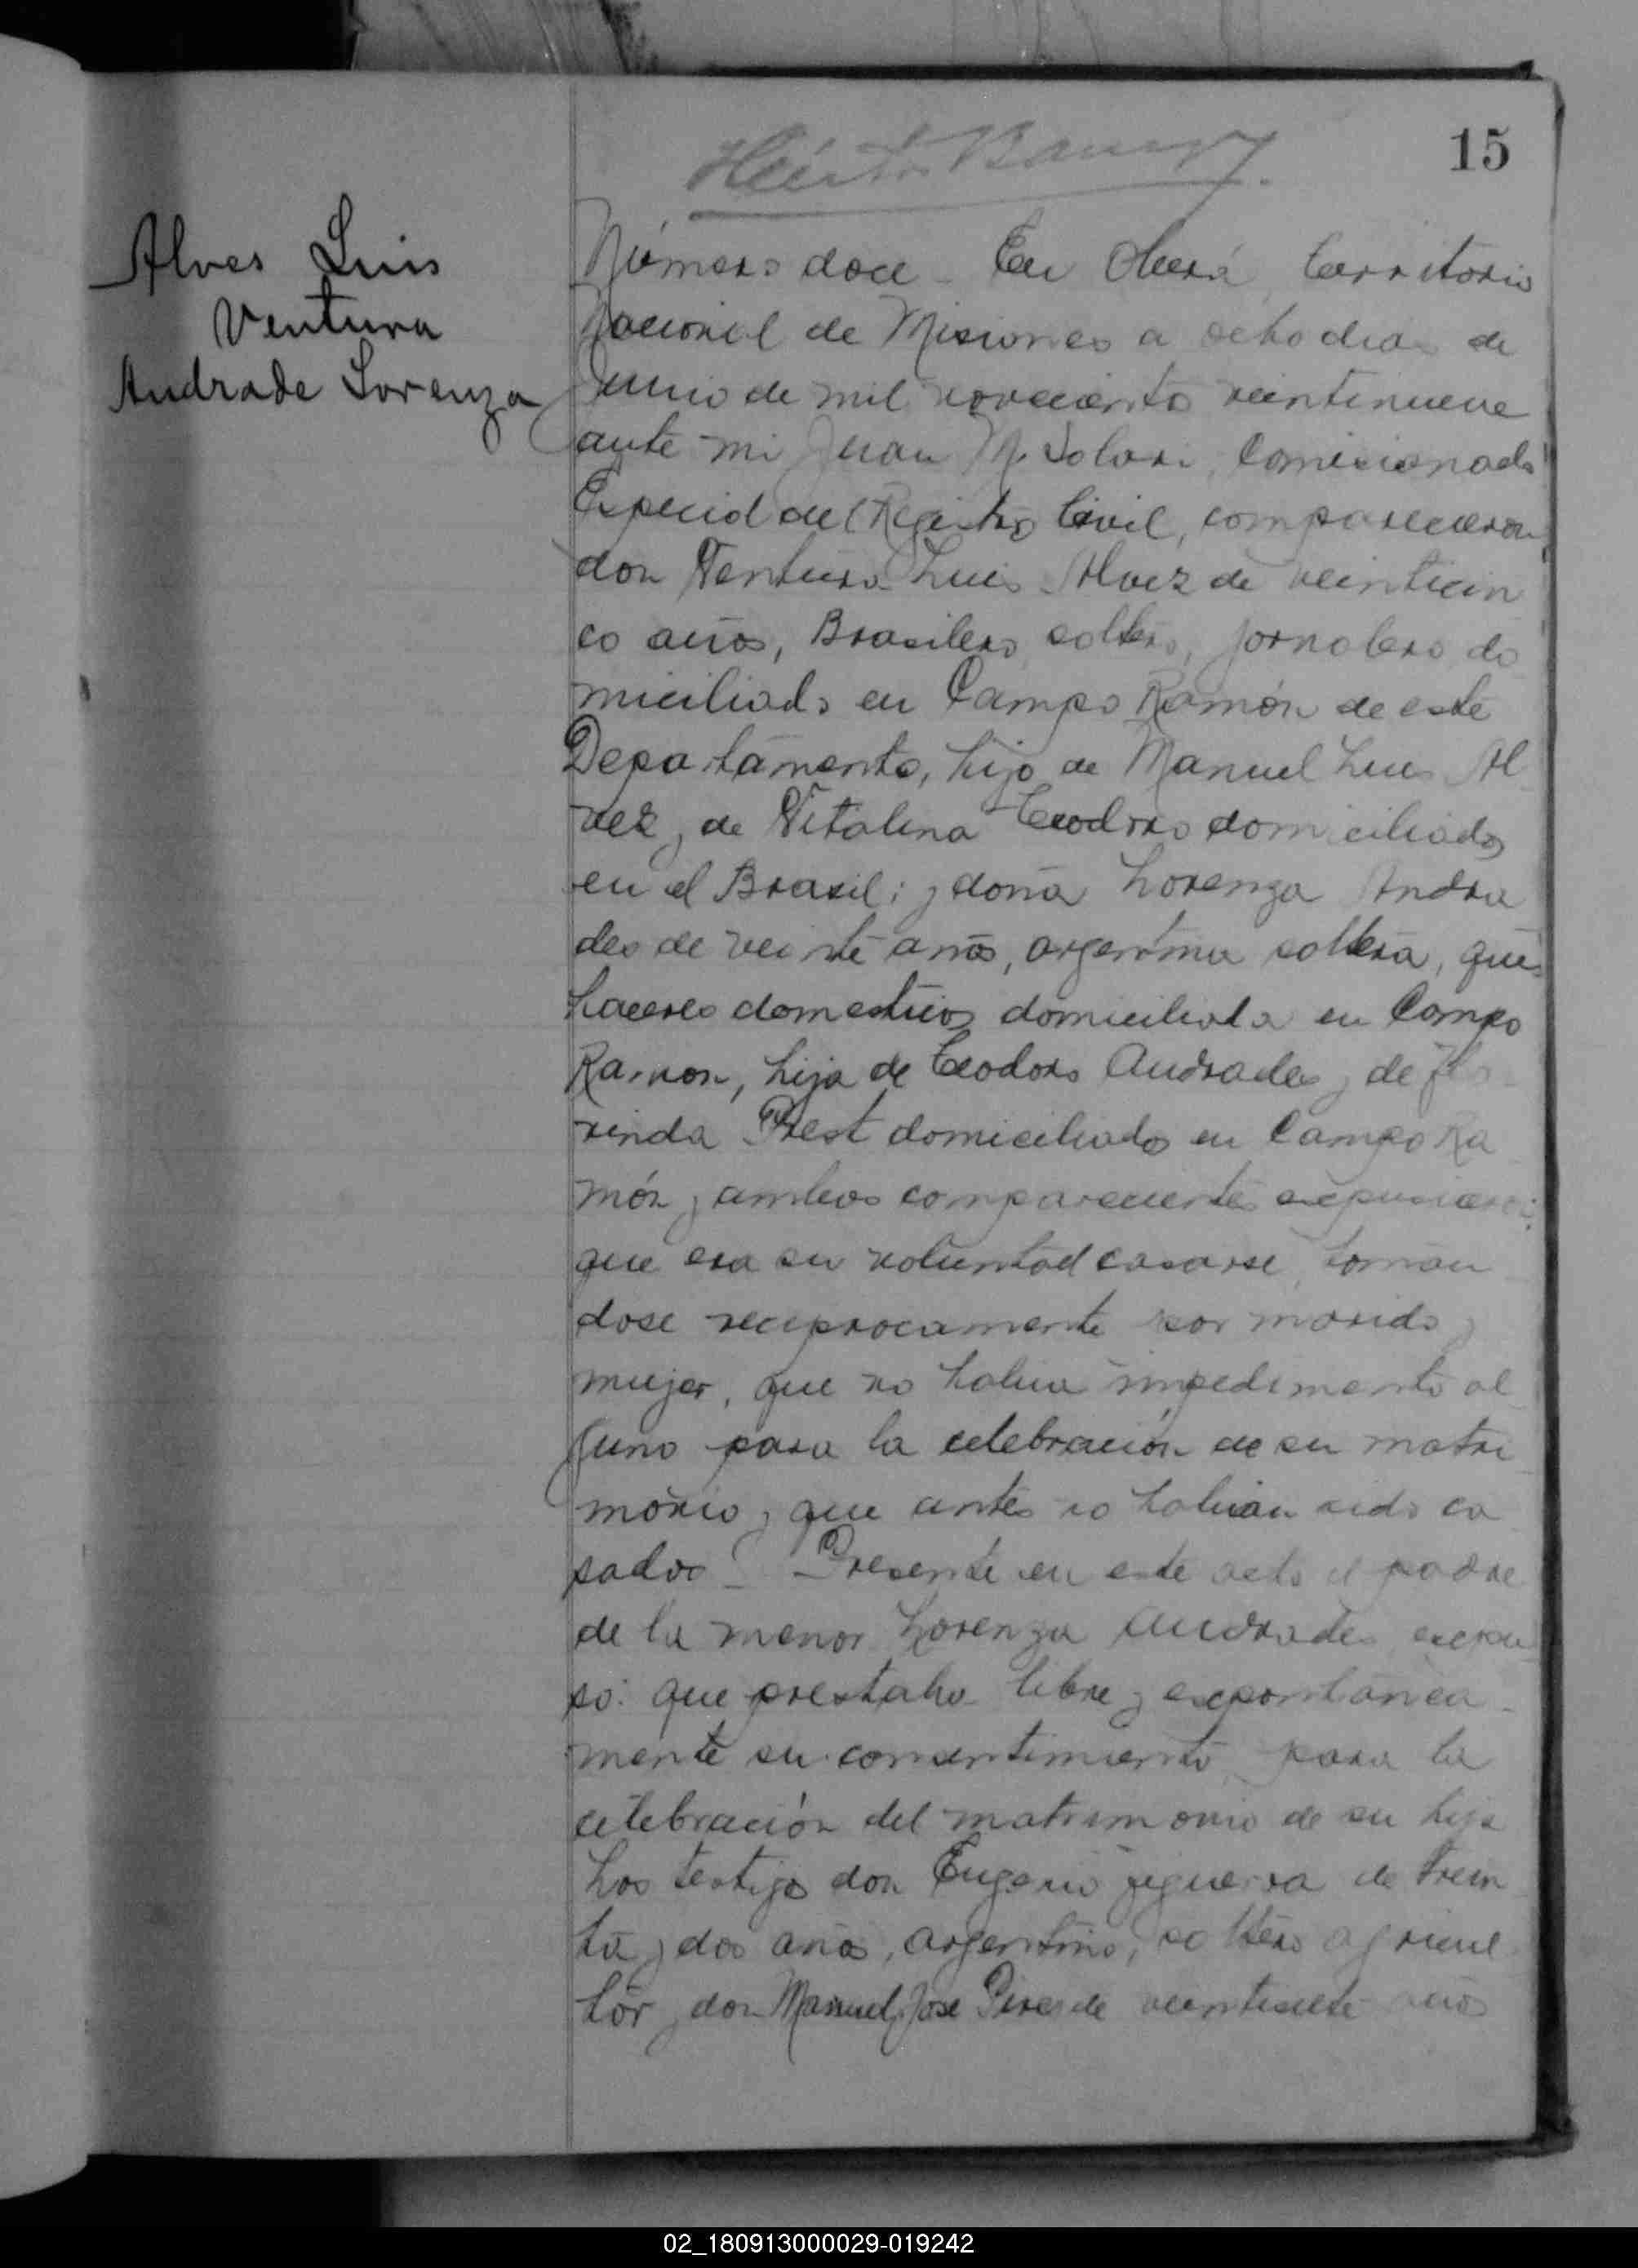 15
Alves Luis
Ventura
Andrade Lorenza
Número doce - En Oberá, Territorio
Nacional de Misiones a ocho dias de
Junio de mil novecientos veintinueve
ante mi Juan M. Solari, Comisionado
Especial del Registro Civil, comparecieron
don Ventura Luis Alvez de veinticin
co años, Brasilero, soltero, jornalero do
miciliado en Campo Ramón de este
Departamento, hijo de Manuel Luis Al
vez y de Vitalina Teodoro domiciliados
en el Brasil; y doña Lorenza Andra
des de veinte años, argentina soltera, que
haceres domesticos domiciliada en Campo
Ramon, hija de Teodoro Andrades y de Flo
rinda Prest domiciliados en Campo Ra
món y ambos comparecientes expusieron:
que era su voluntad casarse, toman
dose reciprocamente por marido y
mujer, que no habia impedimento al
guno para la celebración de su matri
monio y que antes no habian sido ca
sados - Presente en este acto el padre
de la menor Lorenza Andrades expu
so: que prestaba libre y expontánea
mente su consentimiento para la
celebración del matrimonio de su hija
Los testigos don Eugenio Figueira de trein
ta y dos años, argentino, soltero agricul
tor y don Manuel José Pires de veintisiete años
02_180913000029-019242